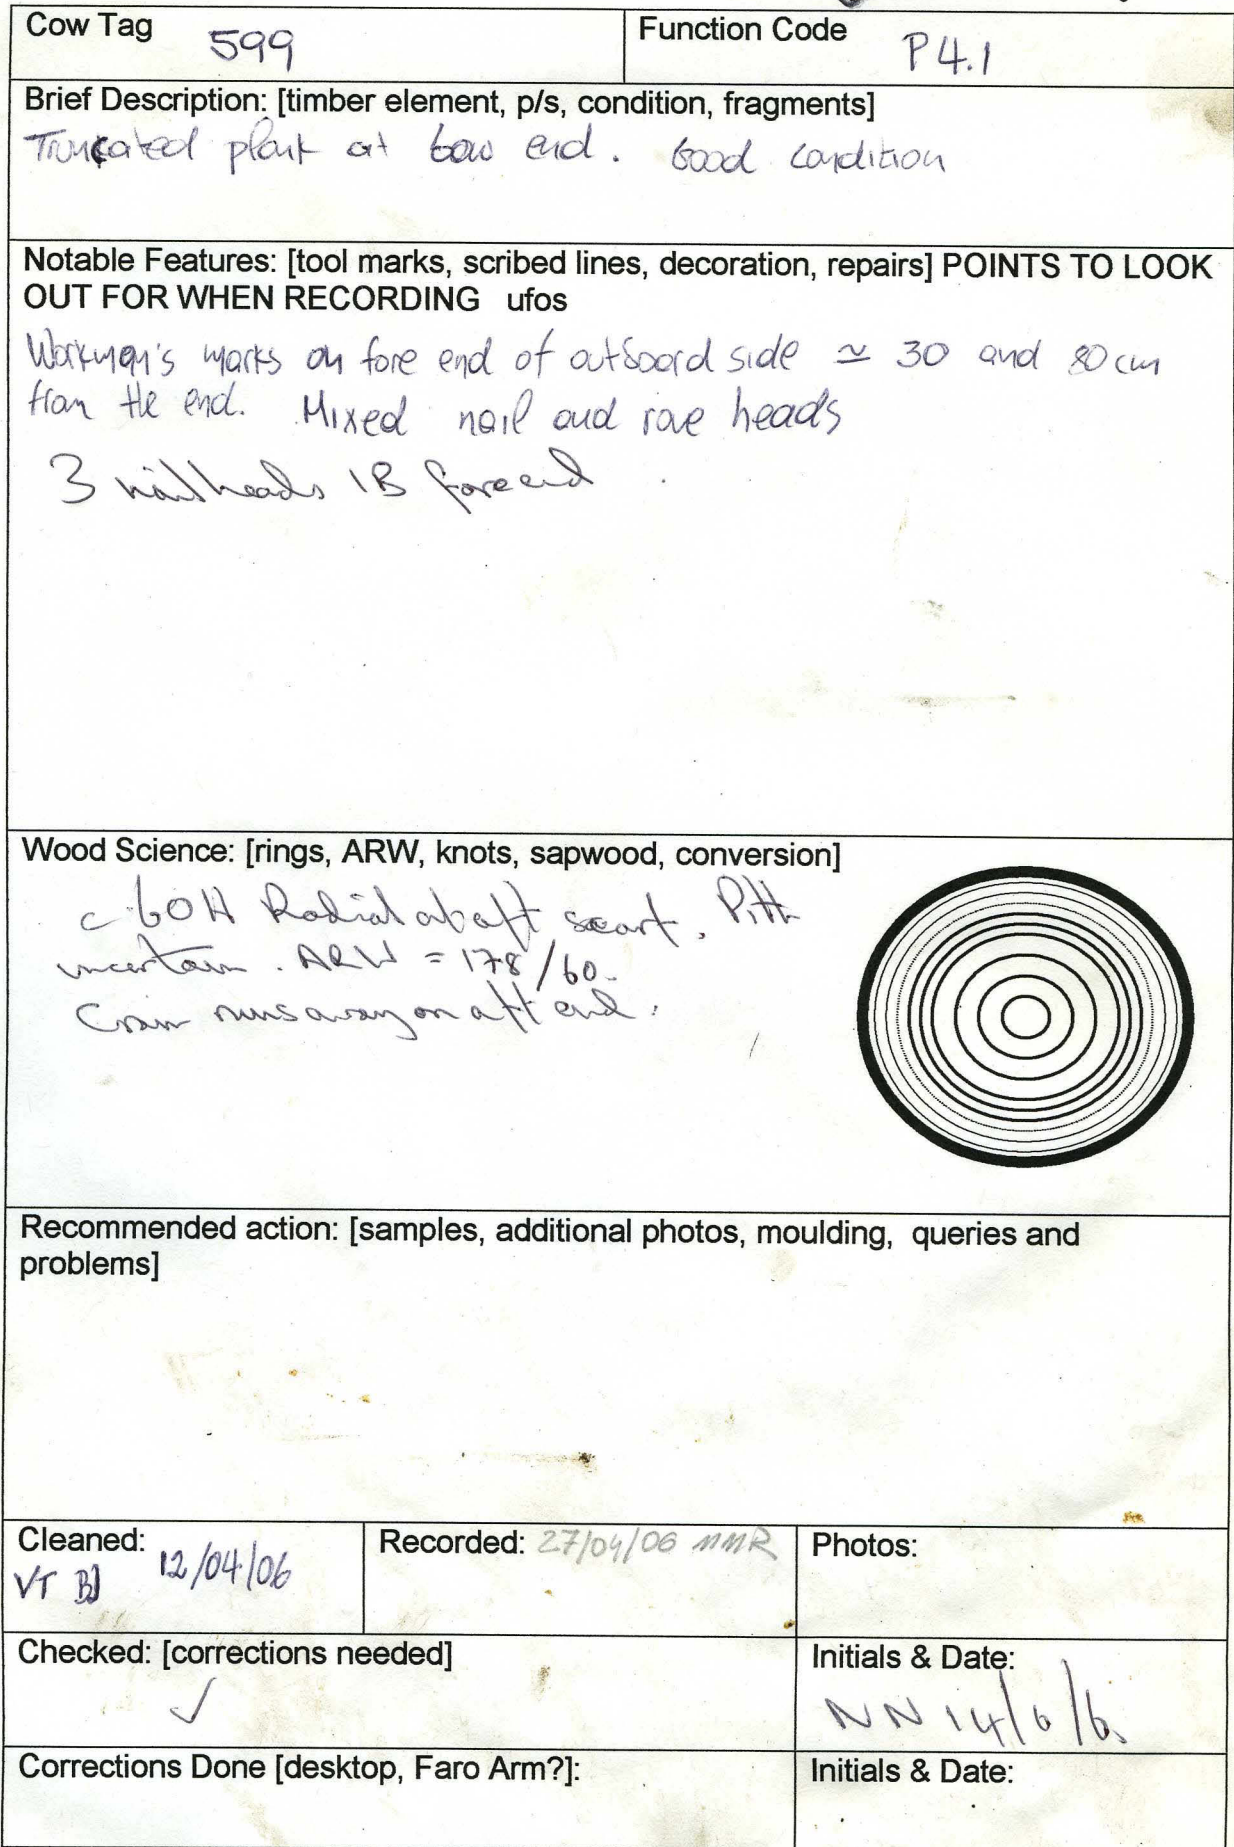 Cow Tag 599 Function Code P4.1
Brief Description: [timber element, p/s, condition, fragments]
Truncated plank at bow end. Good condition
Notable Features: [tool marks, scribed lines, decoration, repairs] POINTS TO LOOK
OUT FOR WHEN RECORDING ufos
Workmen's marks on fore end of outboard side ≃ 30 and 80 cm
from the end. Mixed nail and rove heads
3 nailheads IB fore end
Wood Science: [rings, ARW, knots, sapwood, conversion]
c 60H Radial abaft scarf. Pith
uncertain. ARW = 178/60.
runs away on aft end.
Recommended action: [samples, additional photos, moulding, queries and
problems]
Cleaned: 12/04/06 Recorded: 27/04/06 NMR Photos:
VT BJ
Checked: [corrections needed] Initials & Date:
✓ NN 14/6/6.
Corrections Done [desktop, Faro Arm?]: Initials & Date: